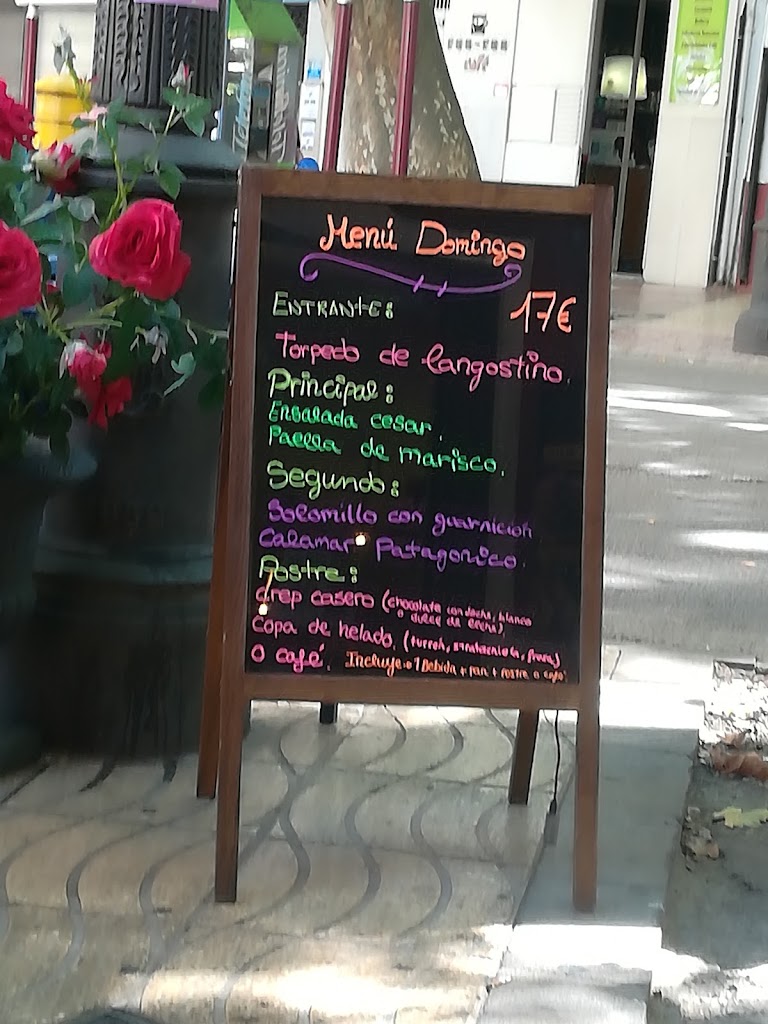 Menú Domingo
ENTRANTE: 17€
Torpedo de langostino.
Principal:
Ensalada cesar.
Paella de marisco.
Segundo:
Solomillo con guarnicion
Calamar Patagonico.
Postre:
Crep casero (chocolate con leche, blanco
o dulce de leche),
Copa de helado, (turron, stratciatela, fresa)
O café. Incluye: 1 Bebida + pan + postre o cafe